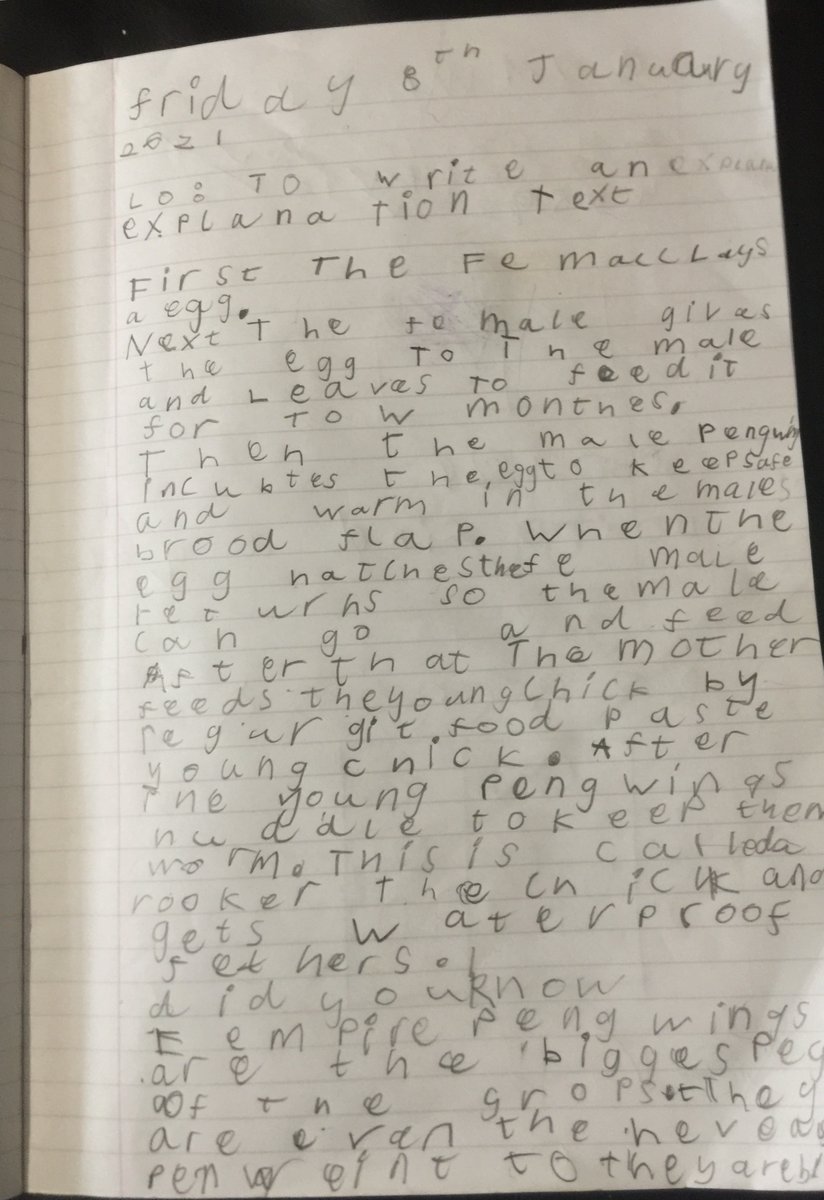 friday 8th January
2021
LO: To write an
explanation text
First The Femalelays
a egg.
Next The female gives
the egg To The male
and Leaves To feed it
for Tow monthes.
Then the male Pengwing
incubtes the eggto keepsafe
and warm in the males
brood flap. When the
egg hatchesthefe male
returns so themale
can go and feed
After that The mother
feeds theyoungchick by
regurgit food paste
young chick. After
The young Pengwings
huddle to keep them
worm. This is calleda
rooker the chick and
gets waterproof
fethers.
did youknow
Eempire Pengwings
are the bigges Peg
of the grops. They
are even the hevea
pen to theyarebl